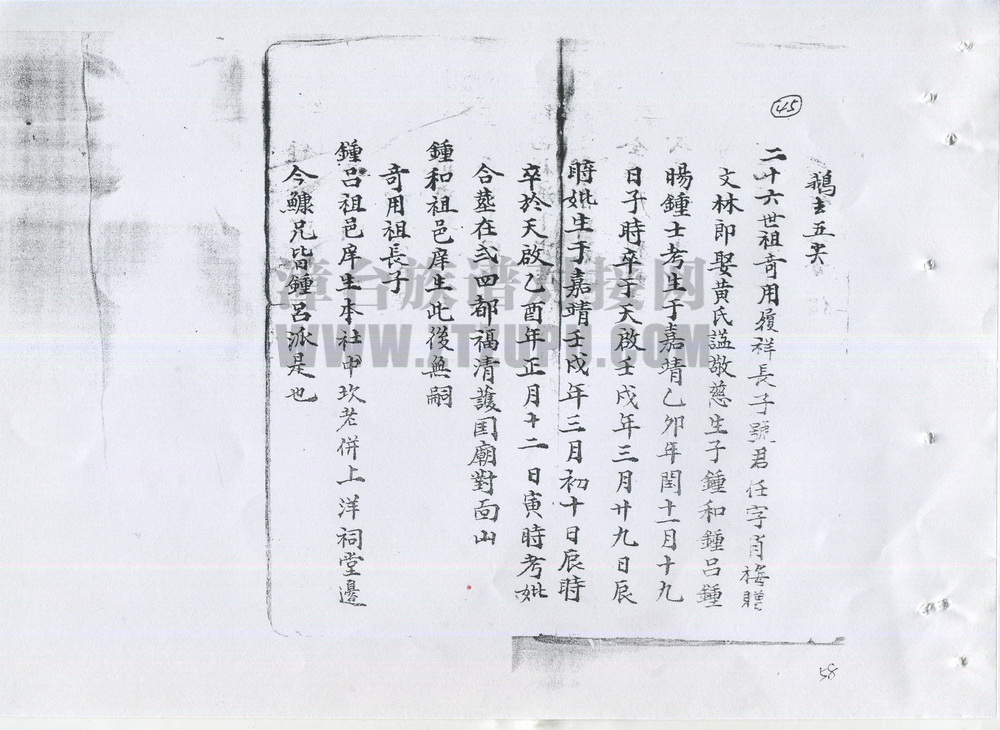 45
鵝去五矣
二十六世祖奇用履祥長子號君任字肖梅贈
文林即娶黃氏謚敬慈生子鍾和鍾呂鍾
暘鍾士考生于嘉靖乙卯年閏十一月十九
日子時卒于天啟壬戌年三月廿九日辰
時妣生于嘉靖壬戌年三月初十日辰時
卒於天啟乙酉年正月十二日寅時考妣
合塟在弍四都福清護國廟對面山
鍾和祖邑庠生此後無嗣
奇用祖長子
鍾呂祖邑庠生本社中坎老併上洋祠堂邊
今鱇兄皆鍾呂派是也
漳台族谱对接网
WWW.ZTZUPU.COM
58